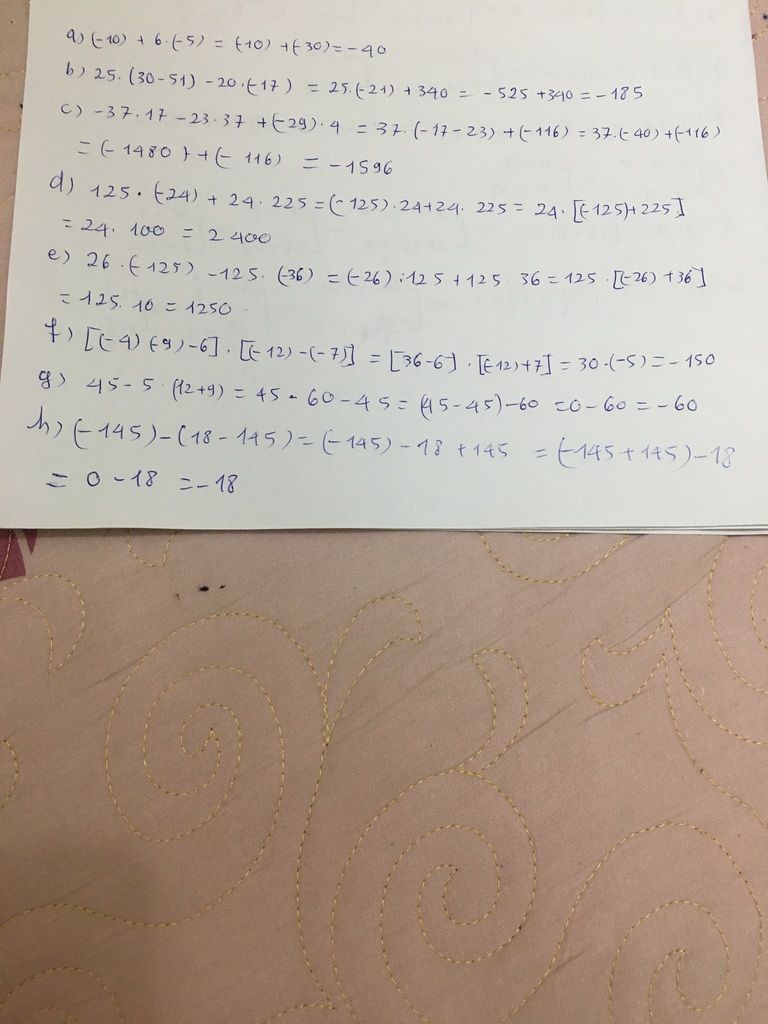 a) (-10) + 6.(-5) = (-10) + (-30) = -40
b) 25.(30-51) - 20.(-17) = 25.(-21) + 340 = -525 + 340 = -185
c) -37.17 - 23.37 + (-29).4 = 37.(-17-23) + (-116) = 37.(-40) + (-116)
= (-1480) + (-116) = -1596
d) 125.(-24) + 24.225 = (-125).24 + 24.225 = 24.[(-125)+225]
= 24.100 = 2400
e) 26.(-125) - 125.(-36) = (-26).125 + 125.36 = 125.[(-26)+36]
= 125.10 = 1250
f) [(-4)(-9)-6].[(-12)-(-7)] = [36-6].[(-12)+7] = 30.(-5) = -150
g) 45-5.(12+9) = 45-60-45 = (45-45)-60 = 0-60 = -60
h) (-145)-(18-145) = (-145)-18+145 = (-145+145)-18
= 0-18 = -18